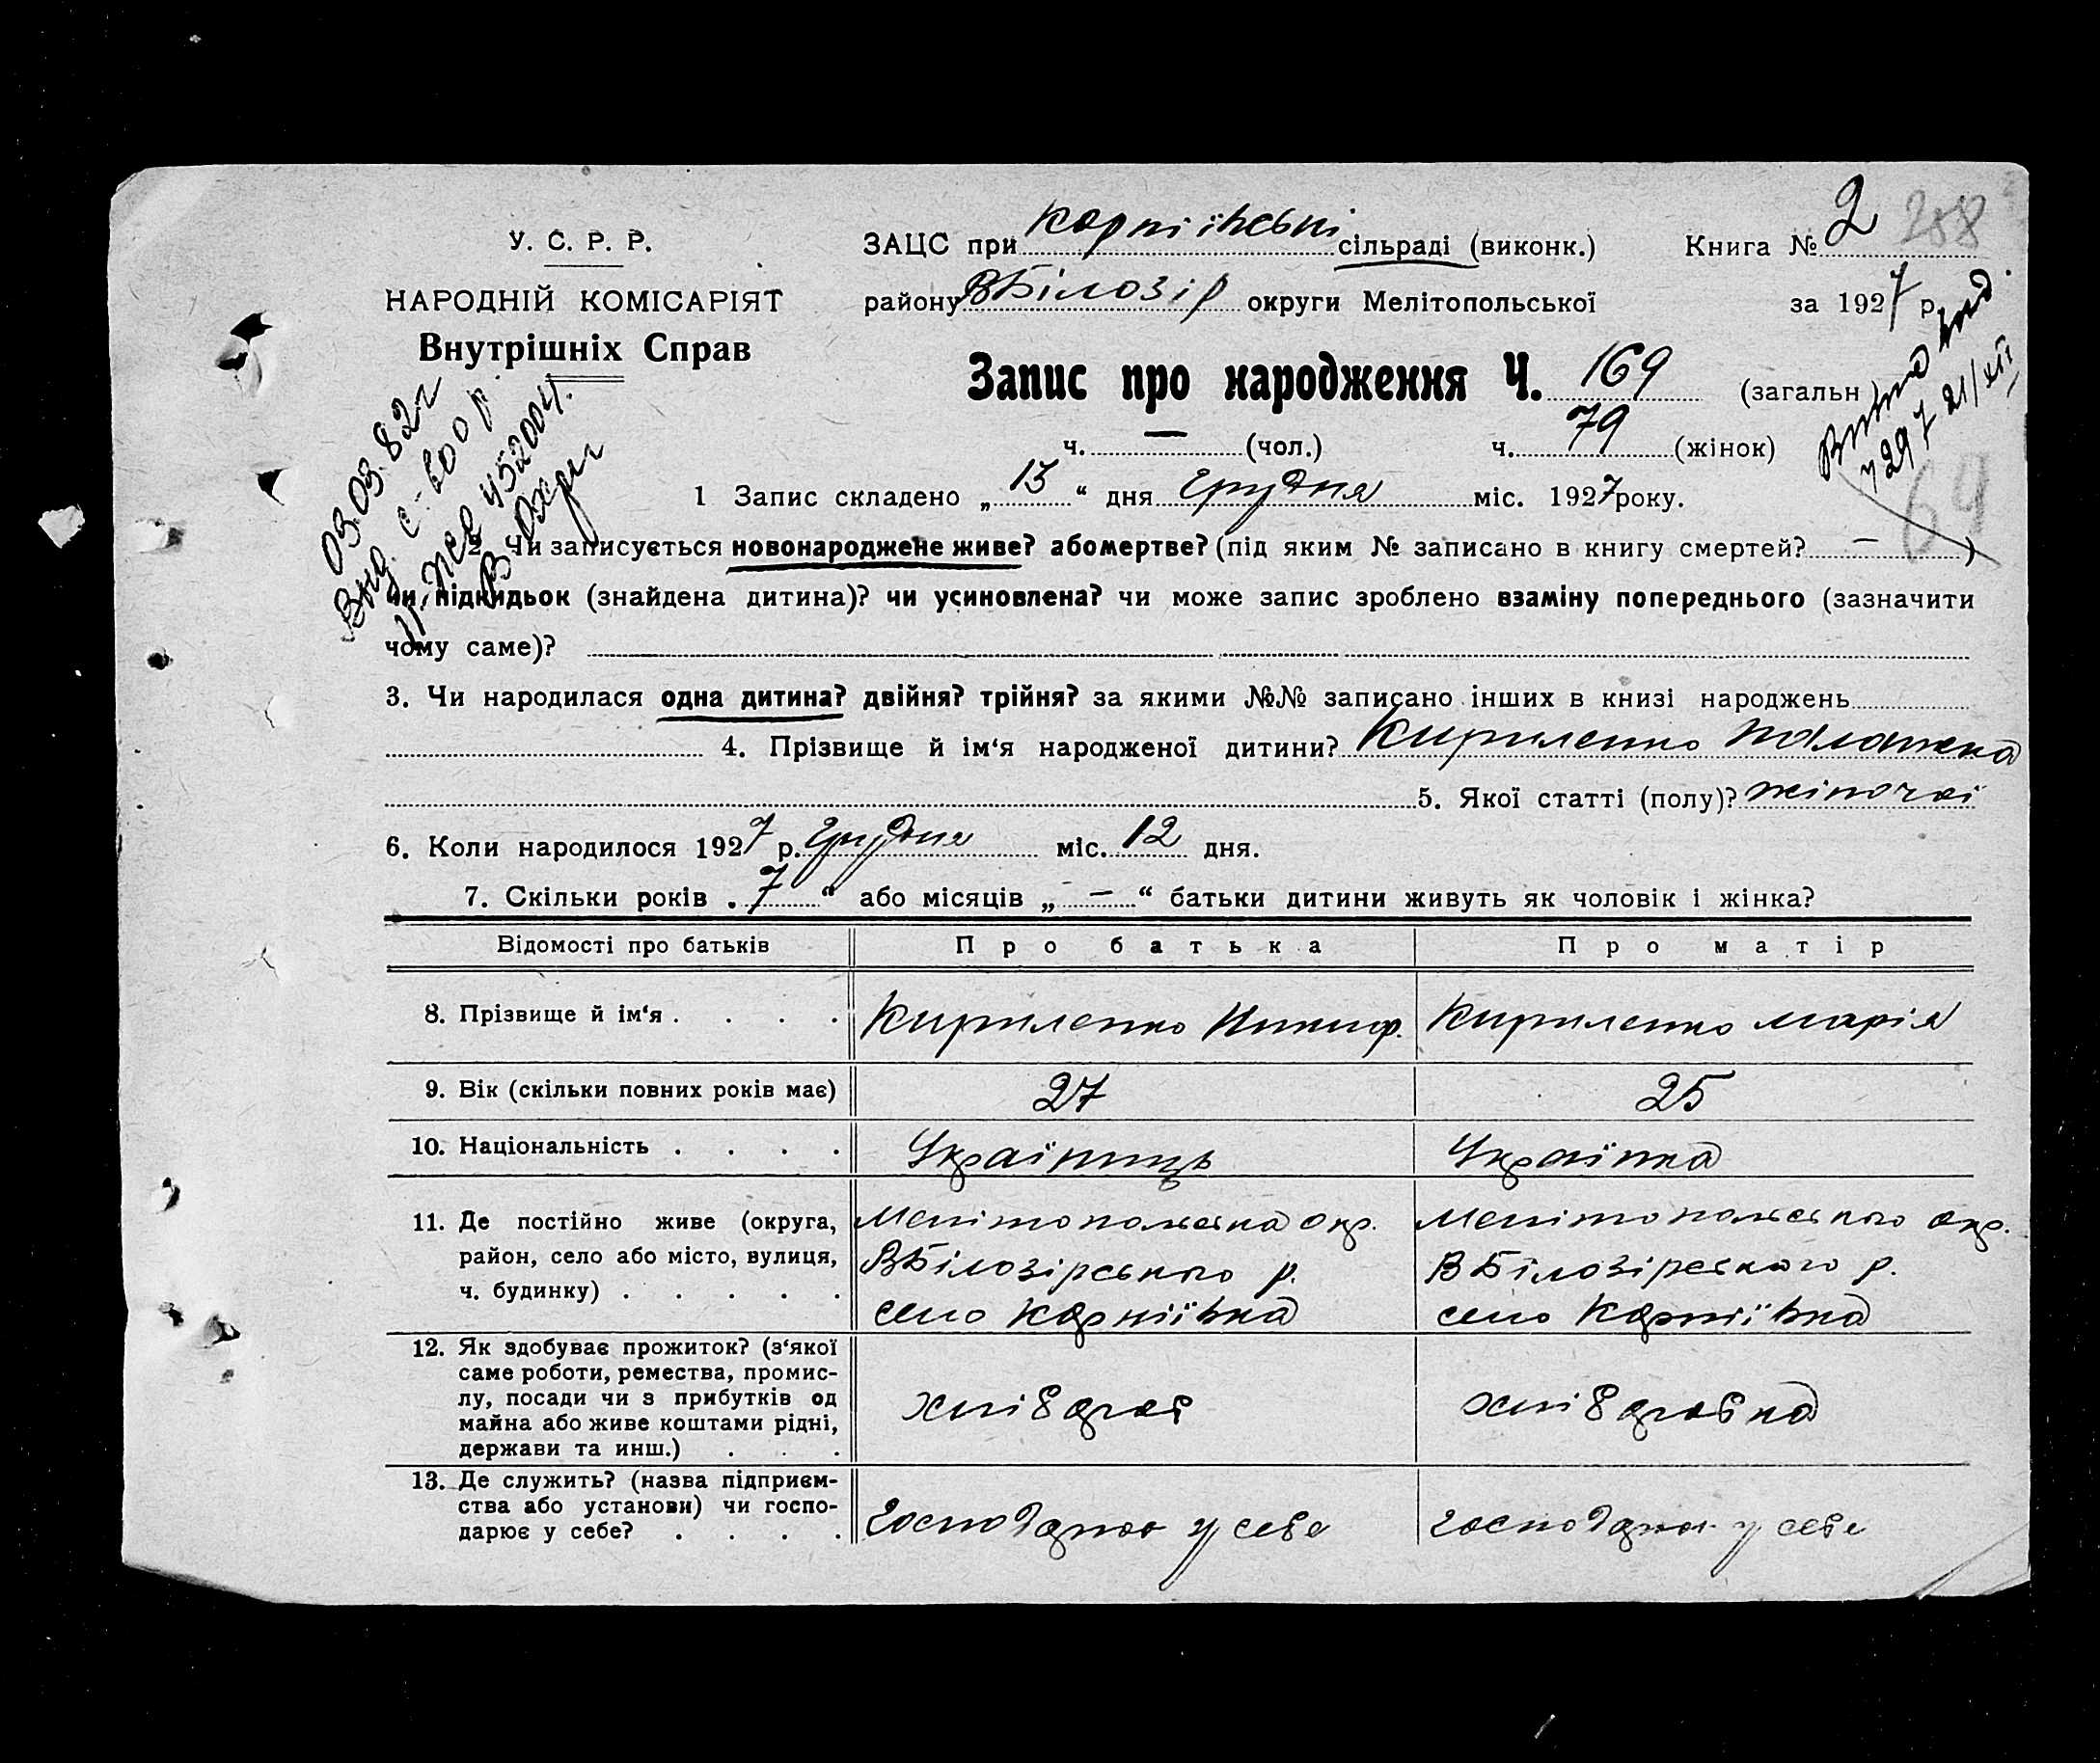 У. С. Р. Р.
НАРОДНІЙ КОМІСАРІЯТ
Внутрішніх Справ
ЗАЦС при Корніївські сільраді (виконк.)
району ВБілозір округи Мелітопольської
Книга № 2
288
за 1927 р.
Запис про народження Ч. 169 (загальн.)
ч. — (чол.) ч. 79 (жінок)
03.03.82г
1 Запис складено „ 15 “ дня Грудня міс. 1927 року.
64
2. Чи записується новонароджене живе? або мертве? (під яким № записано в книгу смертей? — )
чи підкидьок (знайдена дитина)? чи усиновлена? чи може запис зроблено взаміну попереднього (зазначити
чому саме)?
3. Чи народилася одна дитина? двійня? трійня? за якими №№ записано інших в книзі народжень
4. Прізвище й ім‘я народженої дитини? Кириленко Палажка
5. Якої статті (полу)? жіночої
6. Коли народилося 1927 р. Грудня міс. 12 дня.
7. Скільки років „ 7 “ або місяців „ — “ батьки дитини живуть як чоловік і жінка?
Відомості про батьків Про батька Про матір
8. Прізвище й ім‘я . . . . Кириленко Никиф. Кириленко Марія
9. Вік (скільки повних років має) 27 25
10. Національність . . . . Українець Українка
11. Де постійно живе (округа, Мелітопольська окр. Мелітопольського окр.
район, село або місто, вулиця, ВБілозірського р. ВБілозірского р.
ч. будинку) . . . . . село Корніївка село Корніївка
12. Як здобуває прожиток? (з‘якої
саме роботи, ремества, промис-
лу, посади чи з прибутків од хлібороб хліборобка
майна або живе коштами рідні,
держави та инш.) . . .
13. Де служить? (назва підприєм-
ства або установи) чи госпо-
дарює у себе? . . . . господарює у себе господарює у себе